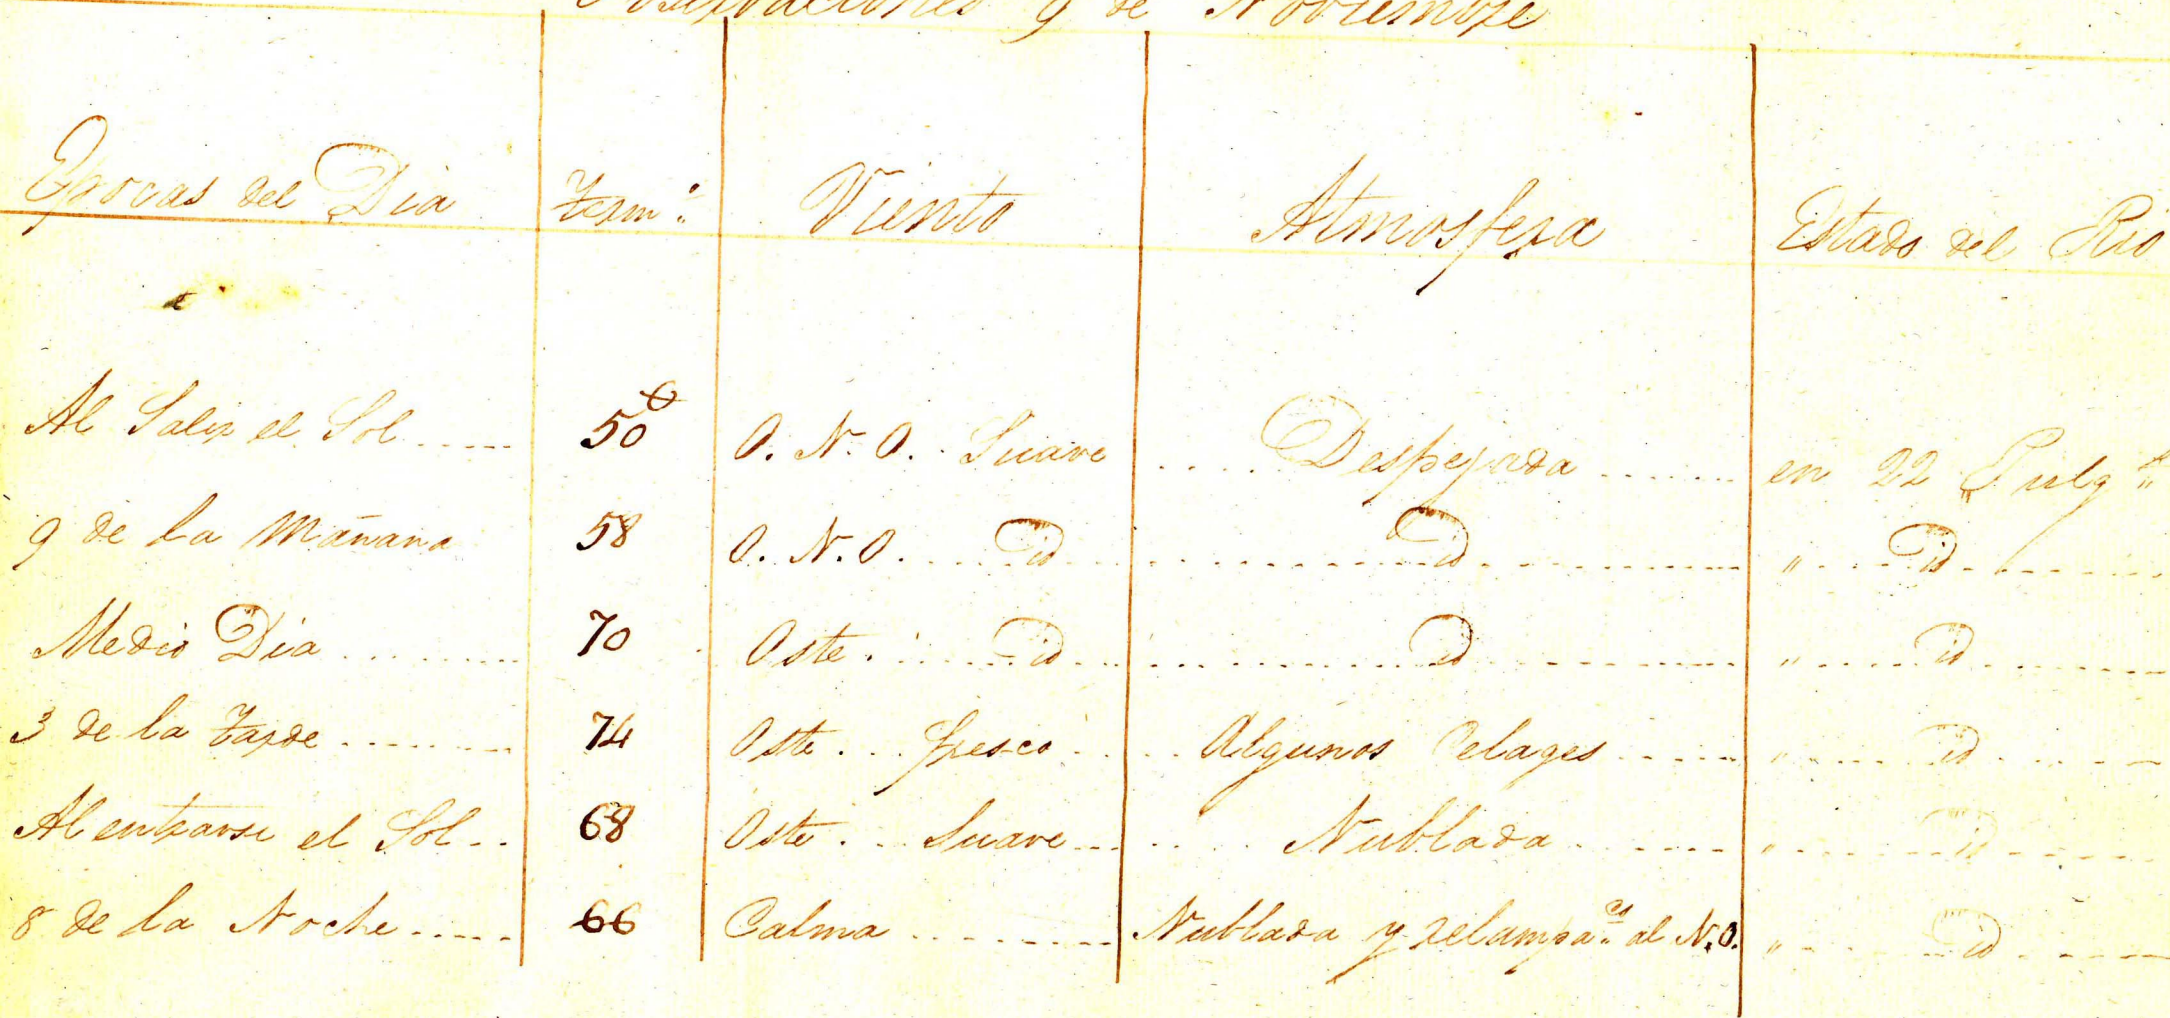 Observaciones 9 de Noviembre
Epocas del Dia Term.º Viento Atmosfera Estado del Rio
Al Salir el Sol ..... 50 O. N. O. Suave .... Despejada ...... en 22 Pulg.s
9 de la Mañana 58 O. N. O. .... id ........ id ........ " .... id ......
Medio Dia ........ 70 Oste. ...... id ........ id ........ " ..... id ......
3 de la tarde ....... 74 Oste ... fresco .... Algunos Celages ..... " ..... id .....
Al entrarse el Sol .. 68 Oste ... Suave ...... Nublada ...... " ..... id .....
8 de la Noche ..... 66 Calma ........ Nublada y relampa.os al N.O. " ..... id .....